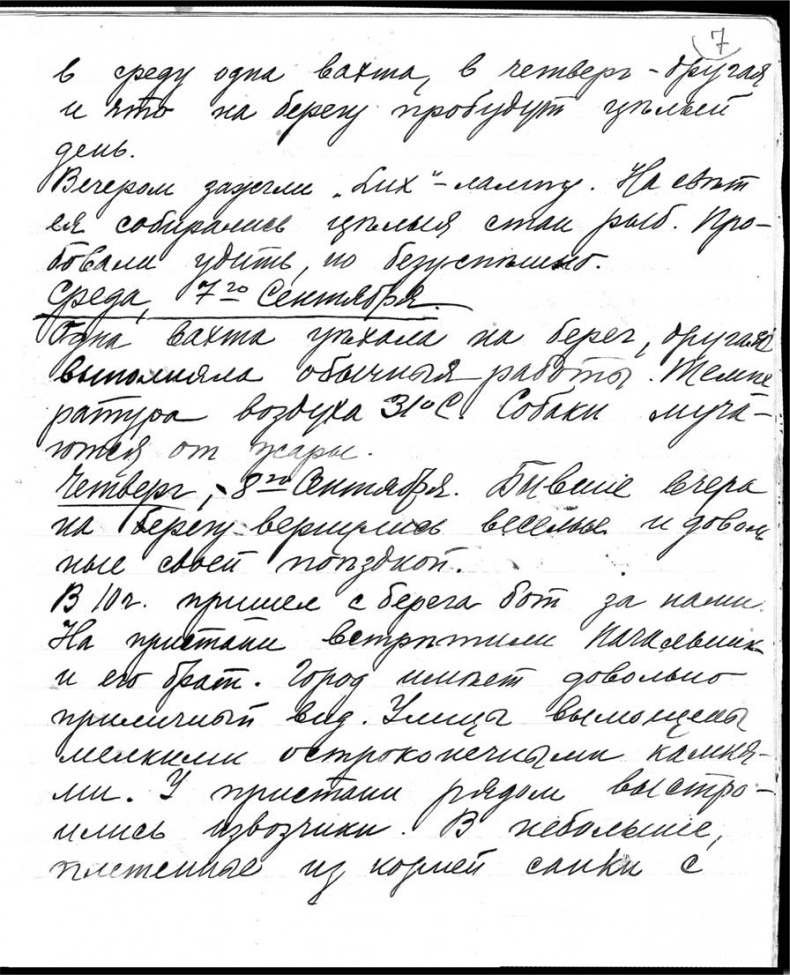 7
в среду одна вахта, в четверг - другая
и что на берегу пробудут цѣлый
день.
Вечером зажгли „Люх"-лампу. На свѣт
ея собирались цѣлыя стаи рыб. Про-
бовали удить, но безуспѣшно.
Среда, 7го Сентября.
Одна вахта уѣхала на берег, другая
выполняла обычныя работы. Темпе
ратура воздуха 31°C. Собаки муча-
ются от жары.
Четверг, 8го Сентября. Бывшие вчера
на берегу вернулись веселые и доволь
ные своей поѣздкой.
В 10 г. пришел с берега бот за нами.
На пристани встрѣтили Начальник
и его брат. Город имѣет довольно
приличный вид. Улицы вымощены
мелкими остроконечными камня-
ми. У пристани рядом выстро-
ились извозчики. В небольшие,
плетенные из корней санки с